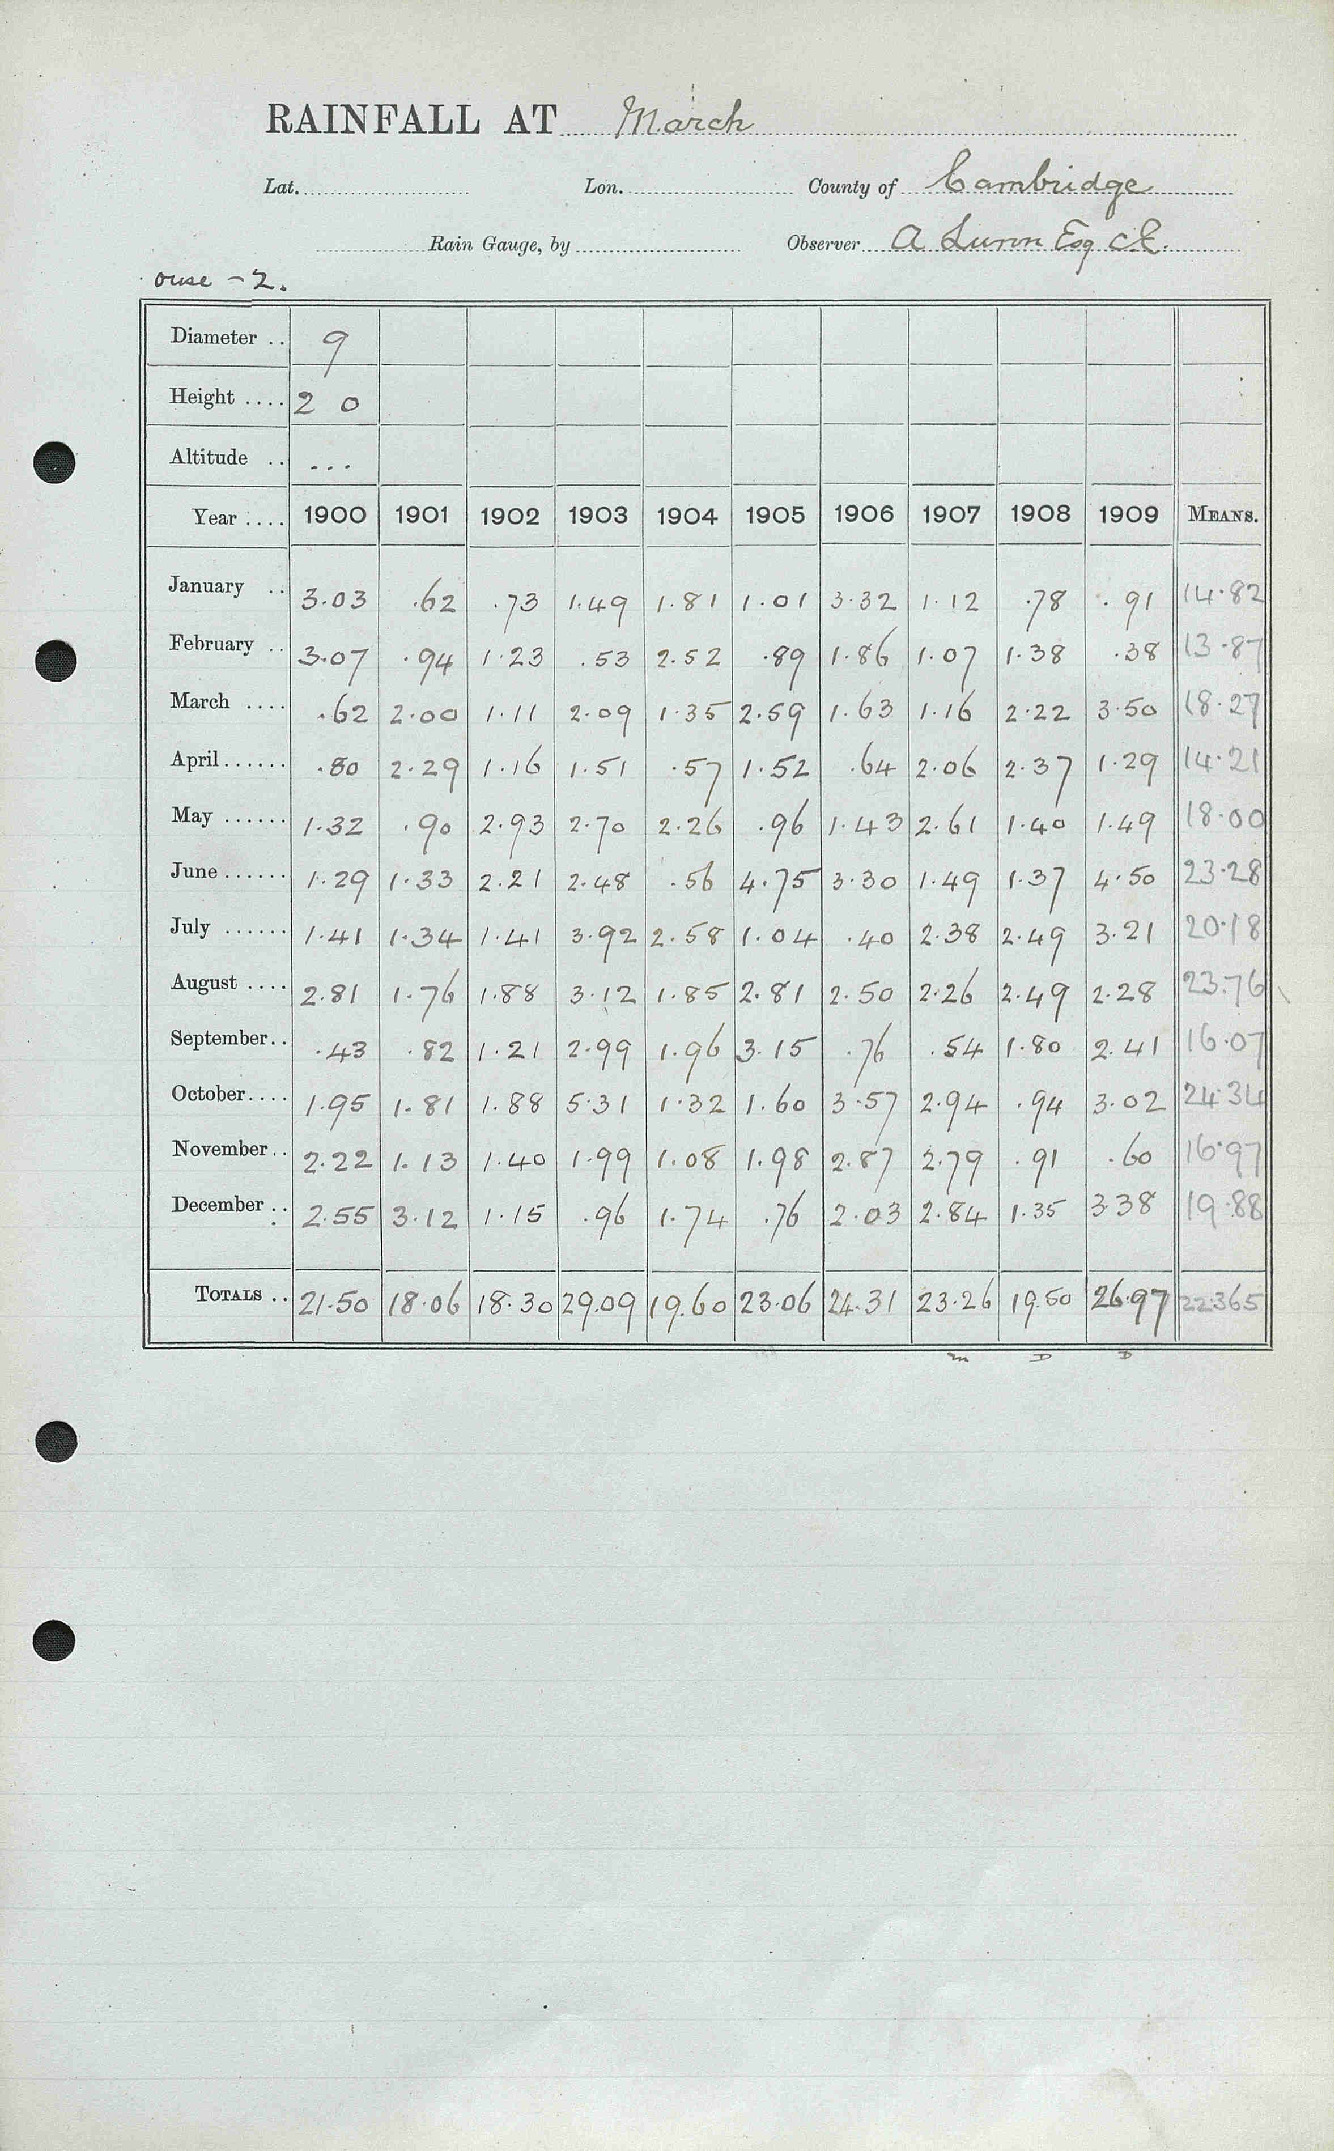 RAINFALL AT March
Lat. Lon. County of Cambridge
Rain Gauge, by Observer A Esq C.E.
ouse - 2.
Diameter .. 9
Height .... 2 0
Altitude .. ...
Year .... 1900 1901 1902 1903 1904 1905 1906 1907 1908 1909 MEANS.
January .. 3.03 .62 .73 1.49 1.81 1.01 3.32 1.12 .78 .91 14.82
February .. 3.07 .94 1.23 .53 2.52 .89 1.86 1.07 1.38 .38 13.87
March .... .62 2.00 1.11 2.09 1.35 2.59 1.63 1.16 2.22 3.50 18.27
April ...... .80 2.29 1.16 1.51 .57 1.52 .64 2.06 2.37 1.29 14.21
May ...... 1.32 .90 2.93 2.70 2.26 .96 1.43 2.61 1.40 1.49 18.00
June ...... 1.29 1.33 2.21 2.48 .56 4.75 3.30 1.49 1.37 4.50 23.28
July ...... 1.41 1.34 1.41 3.92 2.58 1.04 .40 2.38 2.49 3.21 20.18
August .... 2.81 1.76 1.88 3.12 1.85 2.81 2.50 2.26 2.49 2.28 23.76
September .. .43 .82 1.21 2.99 1.96 3.15 .76 .54 1.80 2.41 16.07
October .... 1.95 1.81 1.88 5.31 1.32 1.60 3.57 2.94 .94 3.02 24.34
November .. 2.22 1.13 1.40 1.99 1.08 1.98 2.87 2.79 .91 .60 16.97
December .. 2.55 3.12 1.15 .96 1.74 .76 2.03 2.84 1.35 3.38 19.88
TOTALS .. 21.50 18.06 18.30 29.09 19.60 23.06 24.31 23.26 19.50 26.97 22.365